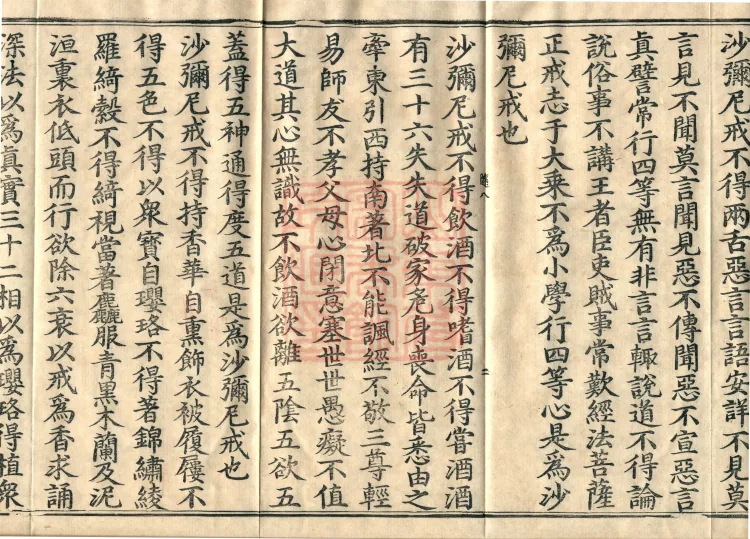 沙彌尼戒不得兩舌惡言言語安詳不見莫
言見不聞莫言聞見惡不傳聞惡不宣惡言
眞譬常行四等無有非言言輙說道不得論
說俗事不講王者臣吏賊事常歎經法菩薩
正戒志于大乘不爲小學行四等心是爲沙
彌尼戒也
沙彌尼戒不得飲酒不得嗜酒不得嘗酒酒
有三十六失失道破家危身喪命皆悉由之
牽東引西持南著北不能諷經不敬三尊輕
易師友不孝父母心閉意塞世世愚癡不值
大道其心無識故不飲酒欲離五陰五欲五
蓋得五神通得度五道是爲沙彌尼戒也
沙彌尼戒不得持香華自熏飾衣被履屨不
得五色不得以衆寶自瓔珞不得著錦繡綾
羅綺縠不得綺視當著麤服青黑木蘭及泥
洹裏衣低頭而行欲除六衰以戒爲香求誦
深法以爲眞實三十二相以爲瓔珞得植衆